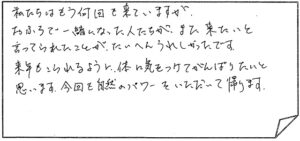 私たちはもう何回も来ていますが、
おふろで一緒になった人たちが、また来たいと
言ってられたことが、たいへんうれしかったです。
来年もこられるように、体に気をつけてがんばりたいと
思います。今回も自然のパワーをいただいて帰ります。